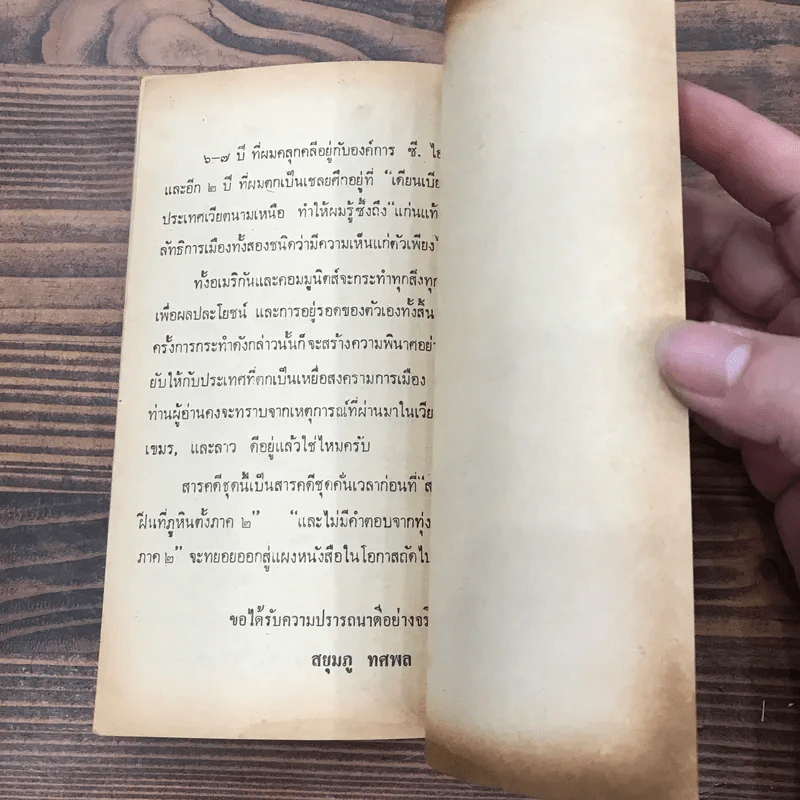 ๖-๗ ปี ที่ผมคลุกคลีอยู่กับองค์การ ซี. ไอ
และอีก ๒ ปี ที่ผมตกเป็นเชลยศึกอยู่ที่ "เดียนเบีย
ประเทศเวียตนามเหนือ ทำให้ผมรู้ซึ้งถึง"แก่นแท้
ลัทธิการเมืองทั้งสองชนิดว่ามีความเห็นแก่ตัวเพียง
ทั้งอเมริกันและคอมมูนิตส์จะกระทำทุกสิ่งทุก
เพื่อผลประโยชน์ และการอยู่รอดของตัวเองทั้งสิ้น
ครั้งการกระทำดังกล่าวนั้นก็จะสร้างความพินาศอย่า
ยับให้กับประเทศที่ตกเป็นเหยื่อสงครามการเมือง
ท่านผู้อ่านคงจะทราบจากเหตุการณ์ที่ผ่านมาในเวีย
เขมร, และลาว ดีอยู่แล้วใช่ไหมครับ
สารคดีชุดนี้เป็นสารคดีชุดคั่นเวลาก่อนที่"ส
ฝืนที่ภูหินตั้งภาค ๒" "และไม่มีคำตอบจากทุ่ง
ภาค ๒" จะทยอยออกสู่แผงหนังสือในโอกาสถัดไป
ขอได้รับความปรารถนาดีอย่างจริ
สยุมภู ทศพล